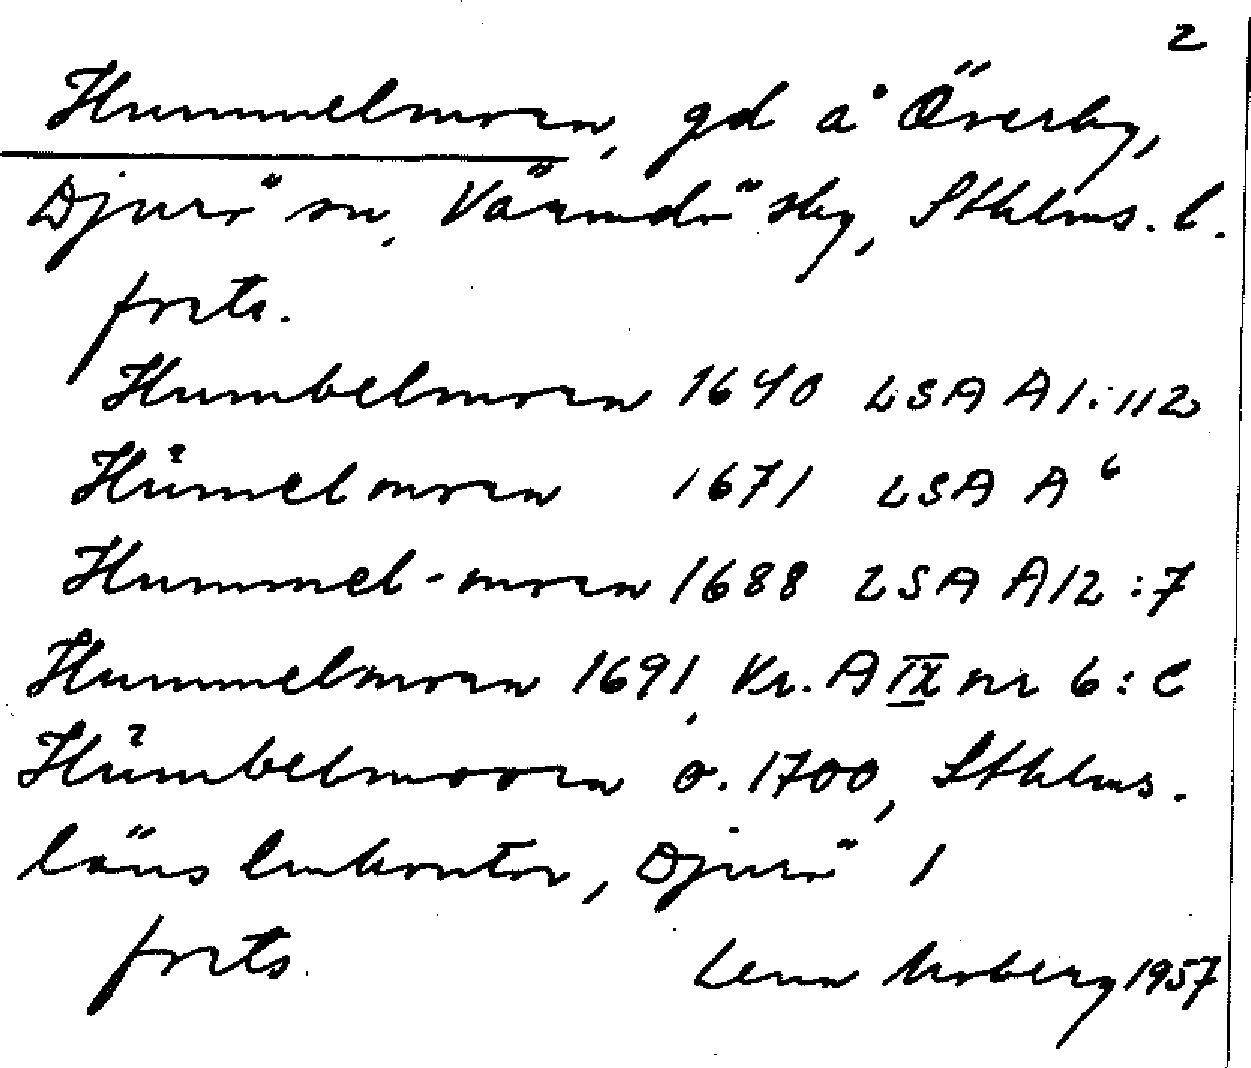 2
Hummelmora, gd å Överby,
Djurö sn, Värmdö sky, Sthlms. l.
forts.
Humbelmora 1640 LSA A1:112
Hůmelmora 1671 LSA A6
Hummel-mora 1688 LSA A12:7
Hummelmora 1691, Kr. A IX nr 6:c
Hůmbelmoora o. 1700, Sthlms.
läns lmkontor, Djurö 1
forts.
Lena Moberg 1957